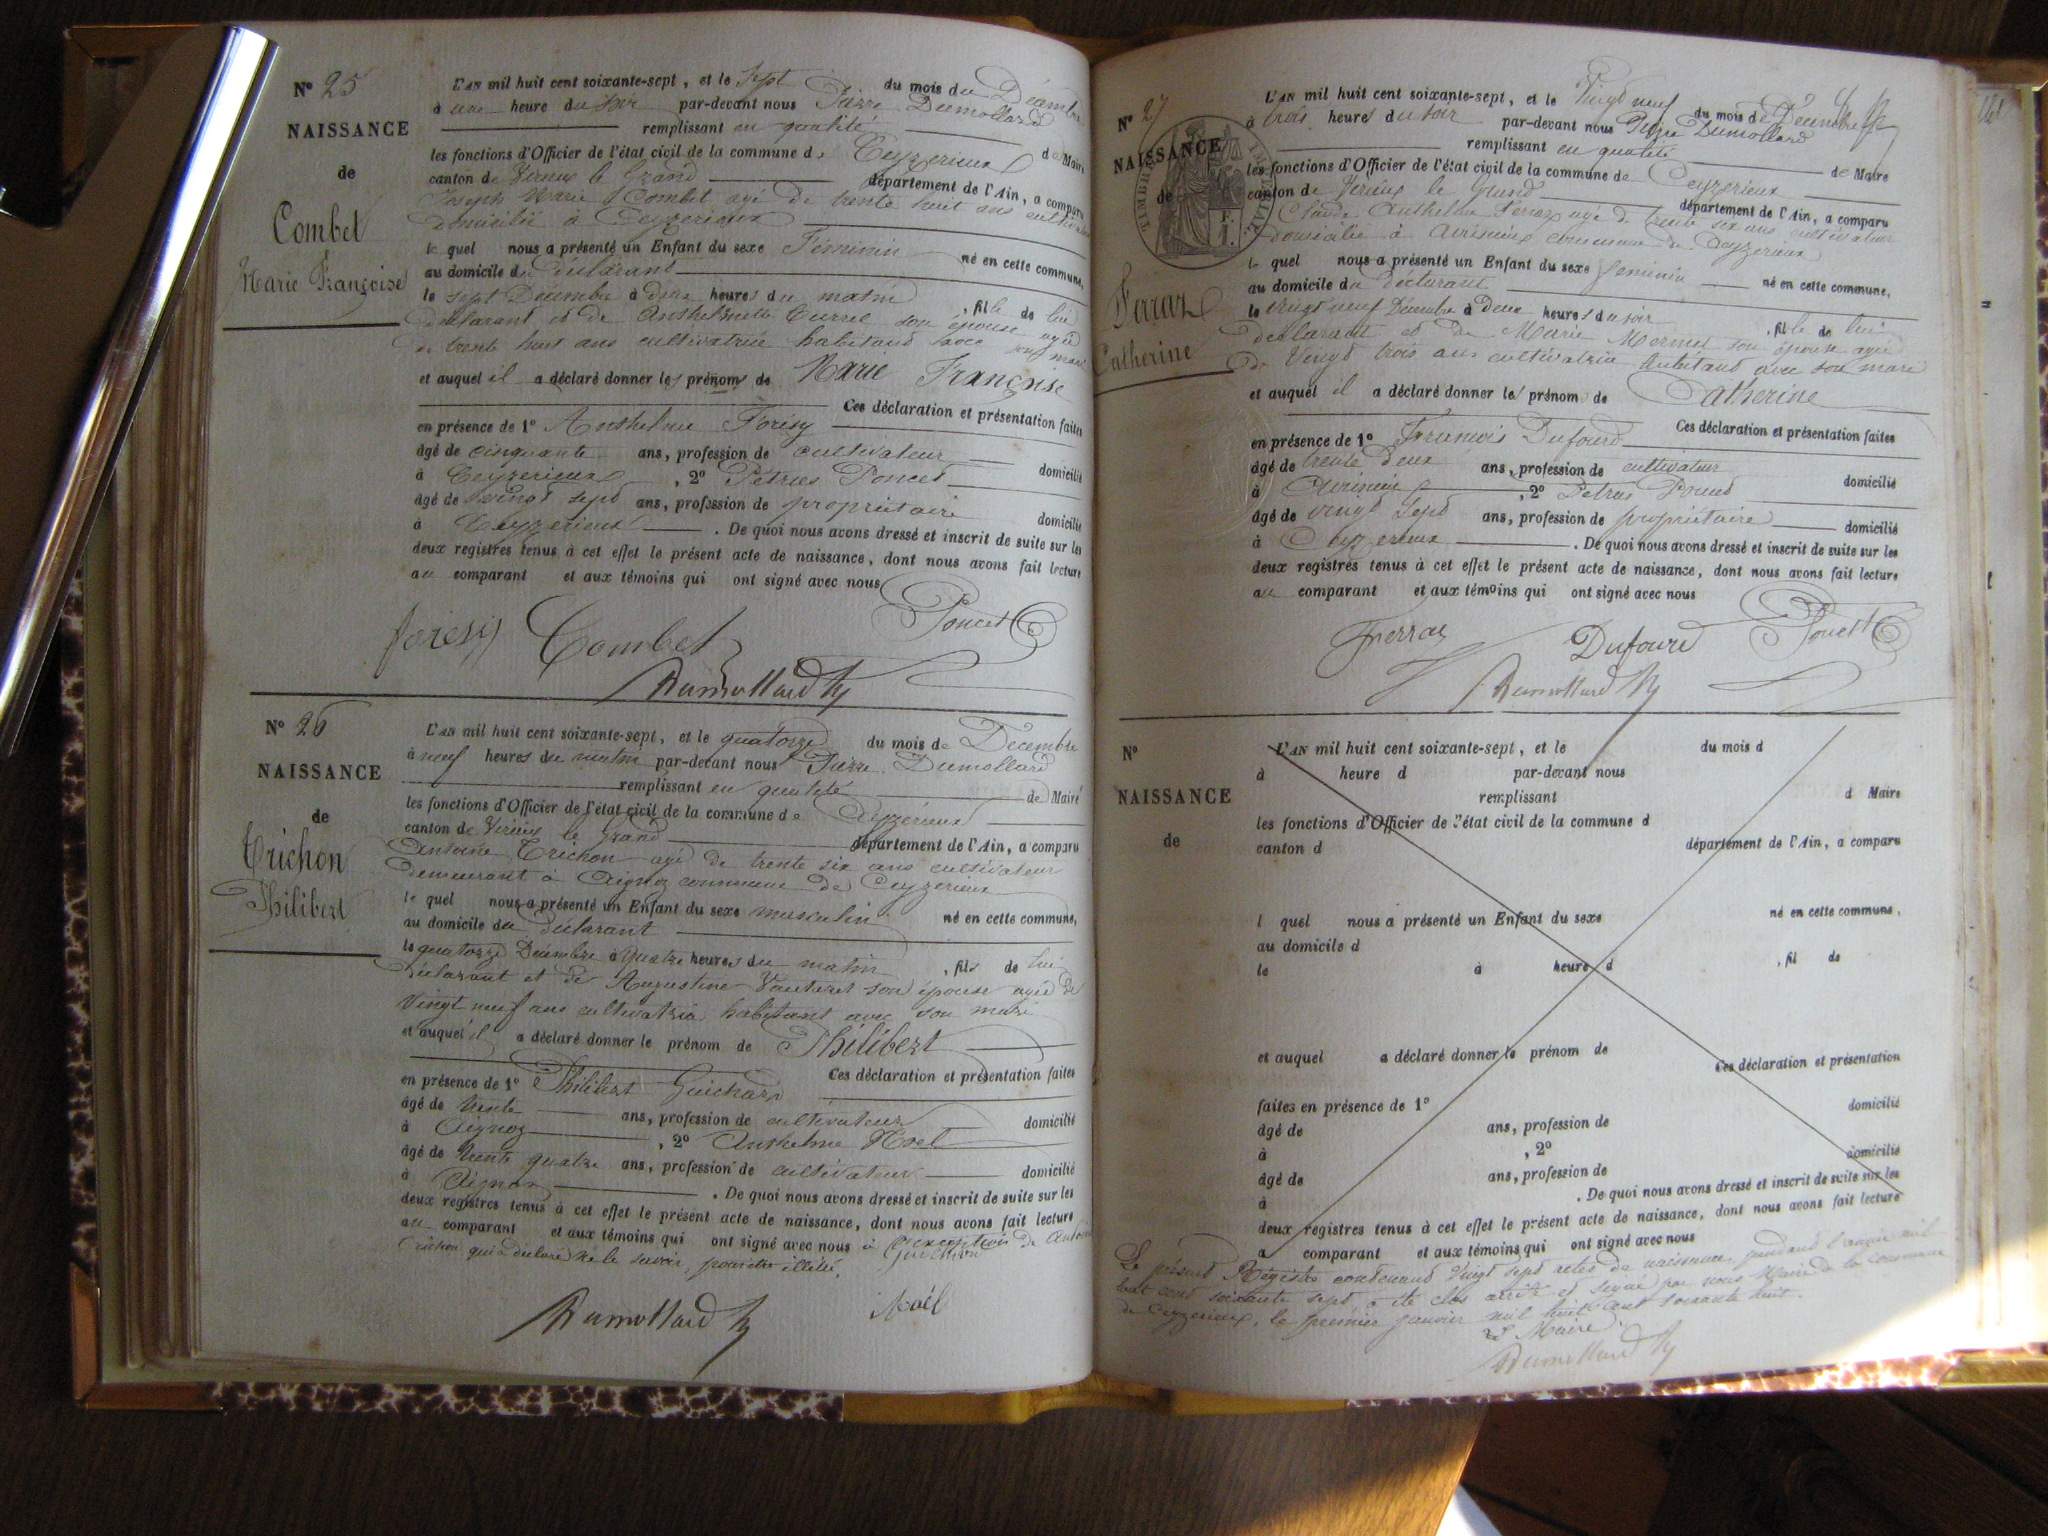 N° 25
NAISSANCE
de
Combet
Marie Françoise
L'AN mil huit cent soixante-sept, et le sept du mois de Décembre
à une heure du soir par-devant nous Pierre Dumollard
remplissant en qualité de Maire
les fonctions d'Officier de l'état civil de la commune de Ceyzerieux
canton de Virieux le Grand département de l'Ain, a comparu
Joseph Marie Combet agé de trente huit ans cultivateur
domicilié à Ceyzerieux
le quel nous a présenté un Enfant du sexe Féminin né en cette commune,
au domicile du déclarant
le sept Décembre à deux heures du matin, fille de lui
déclarant et de Anthelmette son épouse agée
de trente huit ans cultivatrice habitant avec son mari
et auquel il a déclaré donner les prénoms de Marie Françoise
Ces déclaration et présentation faites
en présence de 1° Anthelme Forésy
âgé de cinquante ans, profession de cultivateur domicilié
à Ceyzerieux, 2° Pétrus Poncet
âgé de vingt sept ans, profession de propriétaire domicilié
à Ceyzerieux. De quoi nous avons dressé et inscrit de suite sur les
deux registres tenus à cet effet le présent acte de naissance, dont nous avons fait lecture
au comparant et aux témoins qui ont signé avec nous
foresy Combet Poncet
Dumollard
N° 26
NAISSANCE
de
Trichon
Philibert
L'AN mil huit cent soixante-sept, et le quatorze du mois de Décembre
à neuf heures du matin par-devant nous Pierre Dumollard
remplissant en qualité de Maire
les fonctions d'Officier de l'état civil de la commune de Ceyzérieux
canton de Virieux le Grand département de l'Ain, a comparu
Antoine Trichon agé de trente six ans cultivateur
demeurant à Aignoz commune de Ceyzerieux
le quel nous a présenté un Enfant du sexe masculin né en cette commune,
au domicile du déclarant
le quatorze Décembre à quatre heures du matin, fils de lui
déclarant et de Augustine son épouse agée de
vingt neuf ans cultivatrice habitant avec son mari
et auquel il a déclaré donner le prénom de Philibert
Ces déclaration et présentation faites
en présence de 1° Philibert Guichard
âgé de trente ans, profession de cultivateur domicilié
à Aignoz, 2° Anthelme Noel
âgé de trente quatre ans, profession de cultivateur domicilié
à Aignoz. De quoi nous avons dressé et inscrit de suite sur les
deux registres tenus à cet effet le présent acte de naissance, dont nous avons fait lecture
au comparant et aux témoins qui ont signé avec nous à l'exception de Antoine
Trichon qui a déclaré ne le savoir, pour être illétré.
Guichard
Dumollard Noël
N° 27
NAISSANCE
de
TIMBRE IMPERIAL
Ferraz
Catherine
L'AN mil huit cent soixante-sept, et le Vingt neuf du mois de Décembre
à trois heures du soir par-devant nous Pierre Dumollard
remplissant en qualité de Maire
les fonctions d'Officier de l'état civil de la commune de Ceyzerieux
canton de Virieux le Grand département de l'Ain, a comparu
Claude Anthelme Ferraz agé de trente six ans cultivateur
domicilié à Avrissieux commune de Ceyzerieux
le quel nous a présenté un Enfant du sexe féminin né en cette commune,
au domicile du déclarant
le vingt neuf Décembre à deux heures du soir, fille de lui
déclarant et de Marie Mermet son épouse agée
de vingt trois ans cultivatrice habitant avec son mari
et auquel il a déclaré donner le prénom de Catherine
Ces déclaration et présentation faites
en présence de 1° François Dufourd
âgé de trente deux ans, profession de cultivateur domicilié
à Avrissieux, 2° Pétrus Poncet
âgé de vingt sept ans, profession de propriétaire domicilié
à Ceyzerieux. De quoi nous avons dressé et inscrit de suite sur les
deux registres tenus à cet effet le présent acte de naissance, dont nous avons fait lecture
au comparant et aux témoins qui ont signé avec nous
Ferraz Dufourd Poncet
Dumollard
N°
NAISSANCE
de
L'AN mil huit cent soixante-sept, et le du mois d
à heure d par-devant nous
remplissant d Maire
les fonctions d'Officier de l'état civil de la commune d
canton d département de l'Ain, a comparu
l quel nous a présenté un Enfant du sexe né en cette commune,
au domicile d
le à heure d, fil de
et auquel a déclaré donner le prénom de
Ces déclaration et présentation
faites en présence de 1°
âgé de ans, profession de domicilié
à, 2°
âgé de ans, profession de domicilié
à. De quoi nous avons dressé et inscrit de suite sur les
deux registres tenus à cet effet le présent acte de naissance, dont nous avons fait lecture
a comparant et aux témoins qui ont signé avec nous
Le présent Régistre contenant vingt sept actes de naissance, pendant l'année mil
huit cent soixante sept a été clos arrêté et signé par nous Maire de la commune
de Ceyzerieux, le premier janvier mil huit cent soixante huit.
Le Maire
Dumollard